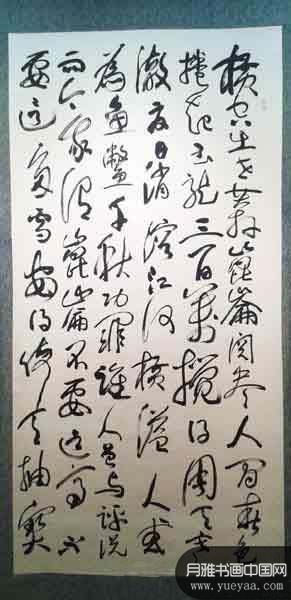 横空出世莽崑崙阅尽人间春色
捲起玉龙三百万搅得周天寒
澈夏日消溶江河横溢人或
为鱼鳖千秋功罪谁人曾与评说
而今我谓崑崙不要这高不
要这多雪安得倚天抽寶
月雅书画中国网
www.yueyaa.com